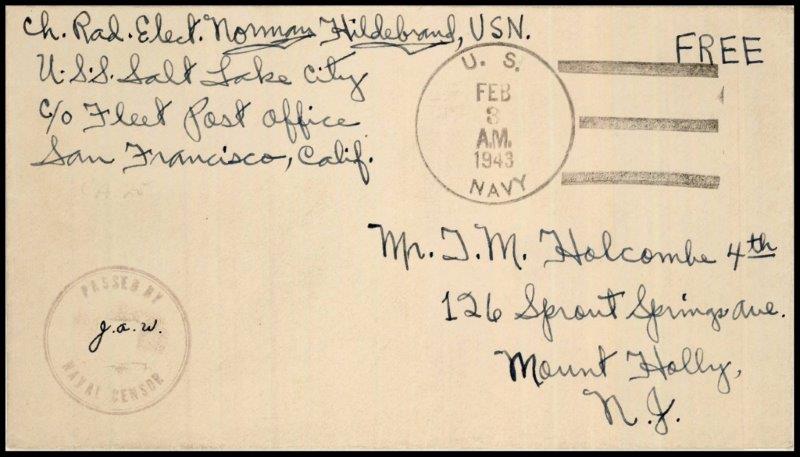 Ch. Rad. Elect. Norman Hildebrand, USN.
U.S.S. Salt Lake City
c/o Fleet Post Office
San Francisco, Calif.
FREE
U. S.
FEB
3
A.M.
1943
NAVY
Mr. T. M. Holcombe 4th
126 Sprout Springs Ave.
Mount Holly,
N.J.
PASSED BY
j.a.w.
NAVAL CENSOR